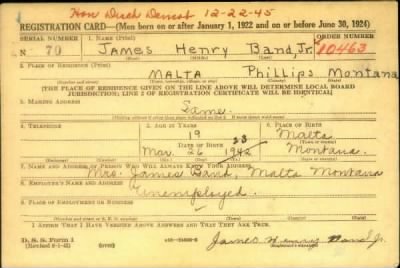 Hon Disch Demob 12-22-45
REGISTRATION CARD—(Men born on or after January 1, 1922 and on or before June 30, 1924)
SERIAL NUMBER 1. NAME (Print) ORDER NUMBER
N 70 James Henry Band, Jr. 10463
(First) (Middle) (Last)
2. PLACE OF RESIDENCE (Print)
MALTA Phillips Montana
(Number and street) (Town, township, village, or city) (County) (State)
[THE PLACE OF RESIDENCE GIVEN ON THE LINE ABOVE WILL DETERMINE LOCAL BOARD
JURISDICTION; LINE 2 OF REGISTRATION CERTIFICATE WILL BE IDENTICAL]
3. MAILING ADDRESS
Same
4. TELEPHONE 5. AGE IN YEARS 6. PLACE OF BIRTH
19 Malta
DATE OF BIRTH 23
Mar. 26 1942 Montana
(Mo.) (Day) (Yr.)
7. NAME AND ADDRESS OF PERSON WHO WILL ALWAYS KNOW YOUR ADDRESS
Mrs. James Band, Malta Montana
8. EMPLOYER'S NAME AND ADDRESS
Unemployed
9. PLACE OF EMPLOYMENT OR BUSINESS
(Number and street or R. F. D. number) (Town) (County) (State)
I AFFIRM THAT I HAVE VERIFIED ABOVE ANSWERS AND THAT THEY ARE TRUE.
D. S. S. Form 1 James Henry Band Jr.